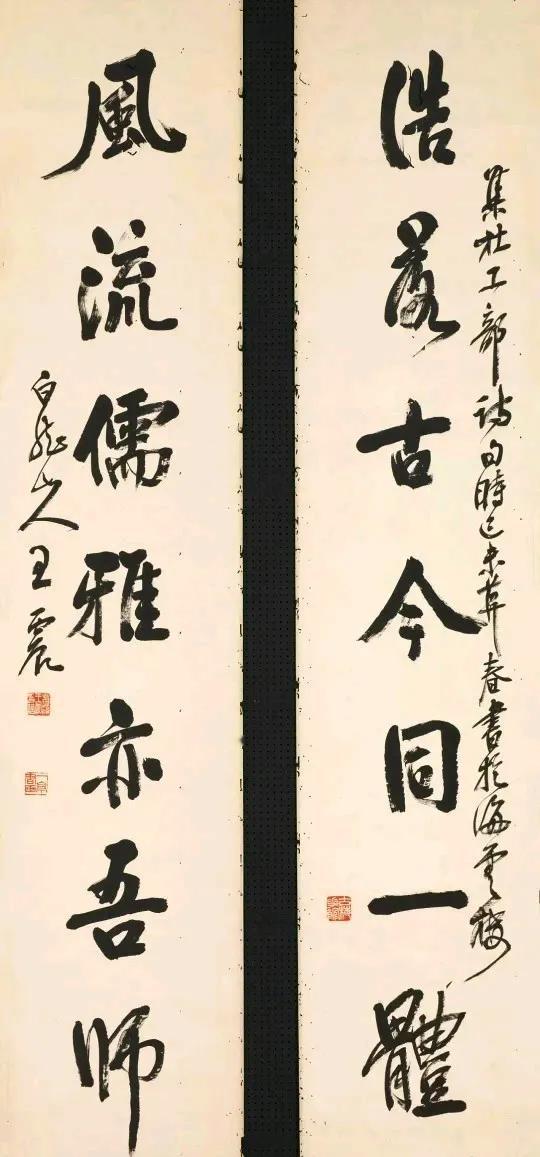 浩古今同一體
集杜工部詩句時己未春書於海雲樓
風流儒雅亦吾師
白龍山人王震